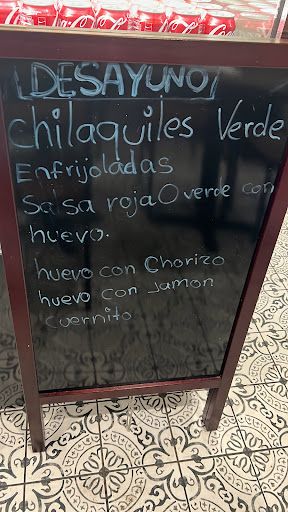 DESAYUNO
Chilaquiles Verde
Enfrijoladas
Salsa roja O verde con
huevo.
huevo con Chorizo
huevo con Jamon
Cuernito